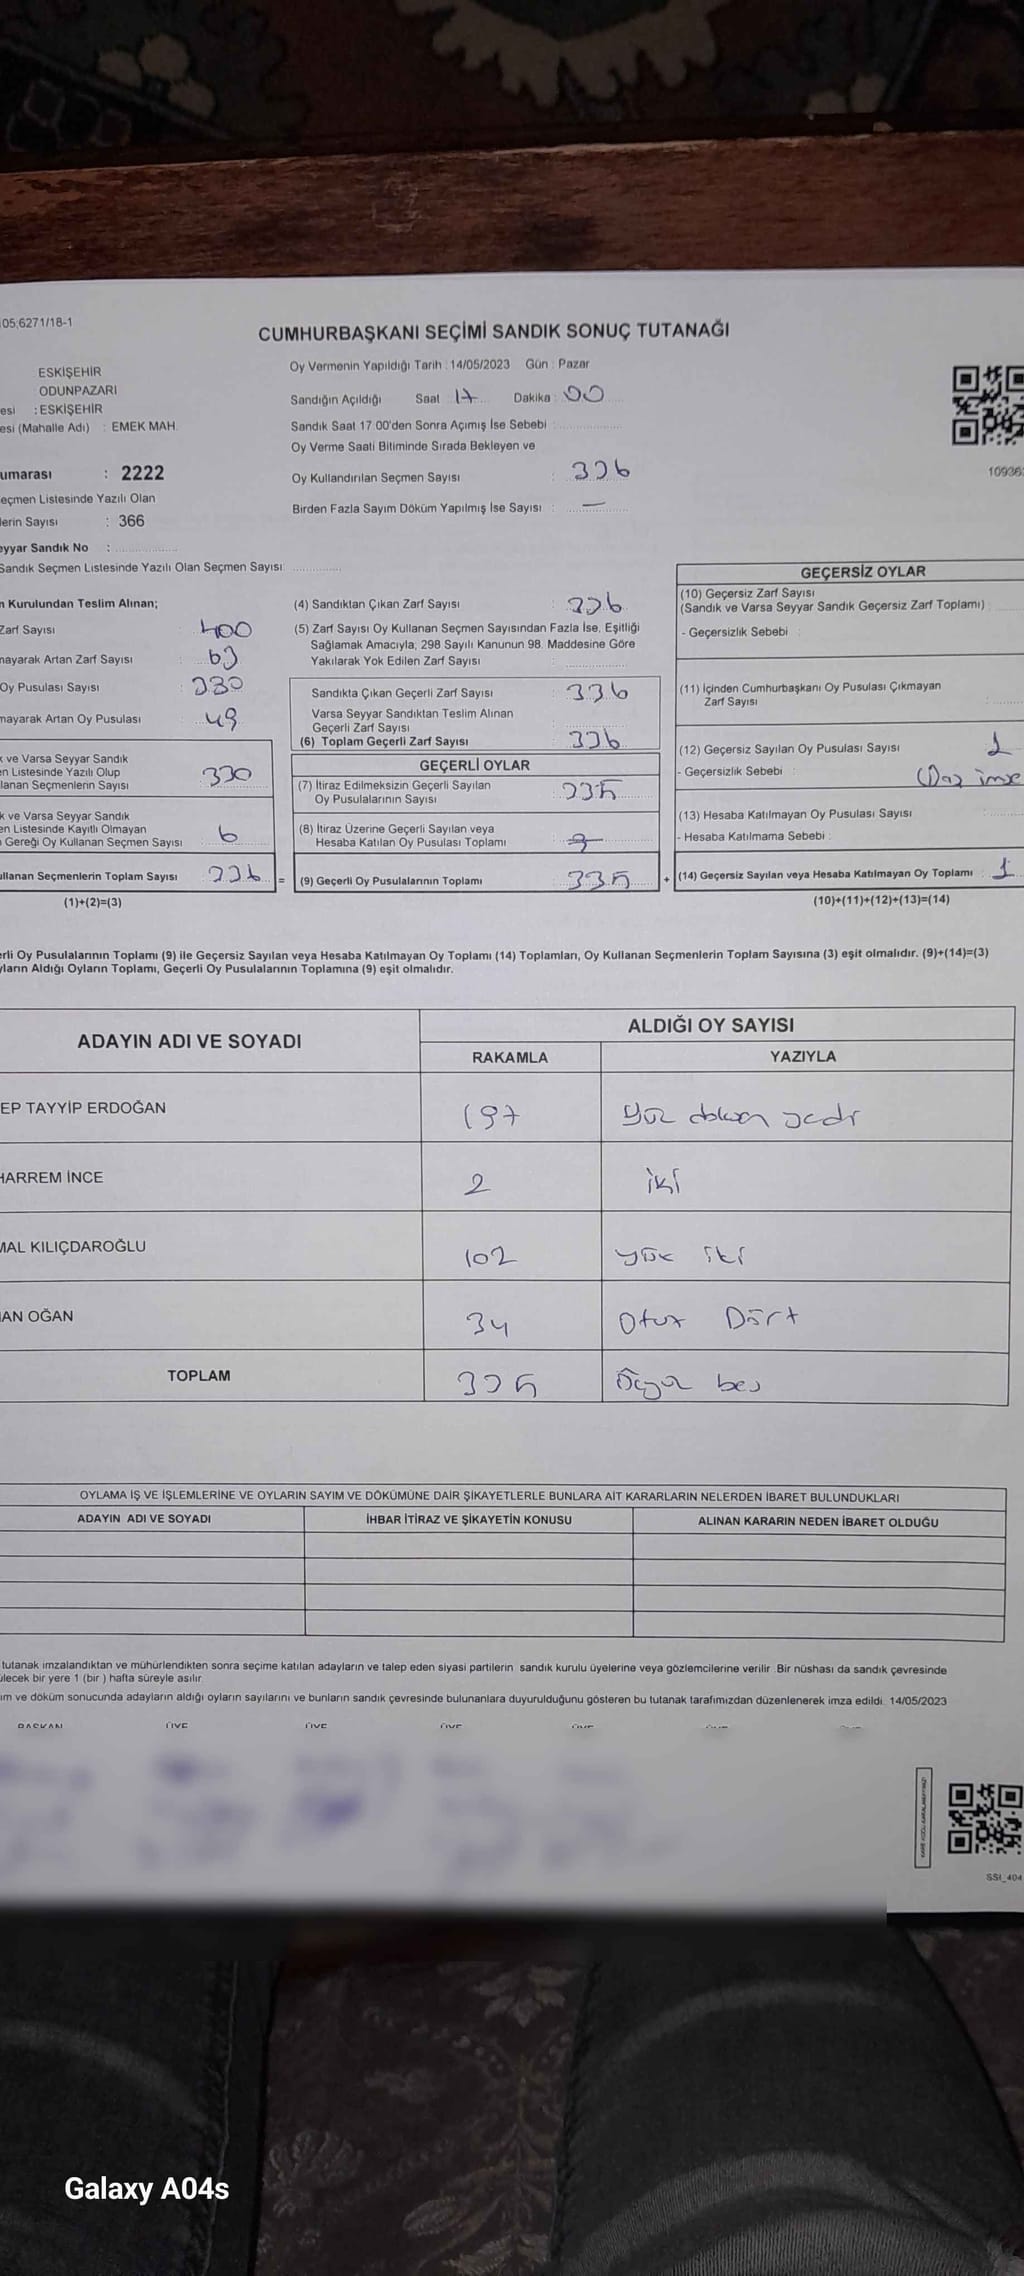 05;6271/18-1
CUMHURBAŞKANI SEÇİMİ SANDIK SONUÇ TUTANAĞI
ESKİŞEHİR
ODUNPAZARI
esi : ESKİŞEHİR
esi (Mahalle Adı) : EMEK MAH.
umarası : 2222
eçmen Listesinde Yazılı Olan
lerin Sayısı : 366
eyyar Sandık No :
Sandık Seçmen Listesinde Yazılı Olan Seçmen Sayısı
Oy Vermenin Yapıldığı Tarih : 14/05/2023 Gün : Pazar
Sandığın Açıldığı Saat 17 Dakika : 00
Sandık Saat 17:00'den Sonra Açımış İse Sebebi :
Oy Verme Saati Bitiminde Sırada Bekleyen ve
Oy Kullandırılan Seçmen Sayısı : 336
Birden Fazla Sayım Döküm Yapılmış İse Sayısı : —
10936
n Kurulundan Teslim Alınan;
Zarf Sayısı 400
mayarak Artan Zarf Sayısı : 63
Oy Pusulası Sayısı : 380
mayarak Artan Oy Pusulası : 49
k ve Varsa Seyyar Sandık
n Listesinde Yazılı Olup
lanan Seçmenlerin Sayısı 330
k ve Varsa Seyyar Sandık
en Listesinde Kayıtlı Olmayan
Gereği Oy Kullanan Seçmen Sayısı 6
ullanan Seçmenlerin Toplam Sayısı 336 =
(1)+(2)=(3)
(4) Sandıktan Çıkan Zarf Sayısı : 336
(5) Zarf Sayısı Oy Kullanan Seçmen Sayısından Fazla İse, Eşitliği
Sağlamak Amacıyla; 298 Sayılı Kanunun 98. Maddesine Göre
Yakılarak Yok Edilen Zarf Sayısı :
Sandıkta Çıkan Geçerli Zarf Sayısı : 336
Varsa Seyyar Sandıktan Teslim Alınan
Geçerli Zarf Sayısı
(6) Toplam Geçerli Zarf Sayısı 336
GEÇERLİ OYLAR
(7) İtiraz Edilmeksizin Geçerli Sayılan
Oy Pusulalarının Sayısı : 335
(8) İtiraz Üzerine Geçerli Sayılan veya
Hesaba Katılan Oy Pusulası Toplamı
(9) Geçerli Oy Pusulalarının Toplamı 335 +
GEÇERSİZ OYLAR
(10) Geçersiz Zarf Sayısı
(Sandık ve Varsa Seyyar Sandık Geçersiz Zarf Toplamı) :
- Geçersizlik Sebebi :
(11) İçinden Cumhurbaşkanı Oy Pusulası Çıkmayan
Zarf Sayısı
(12) Geçersiz Sayılan Oy Pusulası Sayısı : 1
- Geçersizlik Sebebi :
(13) Hesaba Katılmayan Oy Pusulası Sayısı :
- Hesaba Katılmama Sebebi :
(14) Geçersiz Sayılan veya Hesaba Katılmayan Oy Toplamı : 1
(10)+(11)+(12)+(13)=(14)
erli Oy Pusulalarının Toplamı (9) ile Geçersiz Sayılan veya Hesaba Katılmayan Oy Toplamı (14) Toplamları, Oy Kullanan Seçmenlerin Toplam Sayısına (3) eşit olmalıdır. (9)+(14)=(3)
yların Aldığı Oyların Toplamı, Geçerli Oy Pusulalarının Toplamına (9) eşit olmalıdır.
ADAYIN ADI VE SOYADI ALDIĞI OY SAYISI
RAKAMLA YAZIYLA
EP TAYYİP ERDOĞAN 197 yüz doksan yedi
HARREM İNCE 2 iki
MAL KILIÇDAROĞLU 102 yüz iki
AN OĞAN 34 Otuz Dört
TOPLAM 335 Üçyüz beş
OYLAMA İŞ VE İŞLEMLERİNE VE OYLARIN SAYIM VE DÖKÜMÜNE DAİR ŞİKAYETLERLE BUNLARA AİT KARARLARIN NELERDEN İBARET BULUNDUKLARI
ADAYIN ADI VE SOYADI İHBAR İTİRAZ VE ŞİKAYETİN KONUSU ALINAN KARARIN NEDEN İBARET OLDUĞU
tutanak imzalandıktan ve mühürlendikten sonra seçime katılan adayların ve talep eden siyasi partilerin sandık kurulu üyelerine veya gözlemcilerine verilir. Bir nüshası da sandık çevresinde
ülecek bir yere 1 (bir ) hafta süreyle asılır.
ım ve döküm sonucunda adayların aldığı oyların sayılarını ve bunların sandık çevresinde bulunanlara duyurulduğunu gösteren bu tutanak tarafımızdan düzenlenerek imza edildi. 14/05/2023
BAŞKAN ÜYE ÜYE ÜYE ÜYE
SSI_404
Galaxy A04s